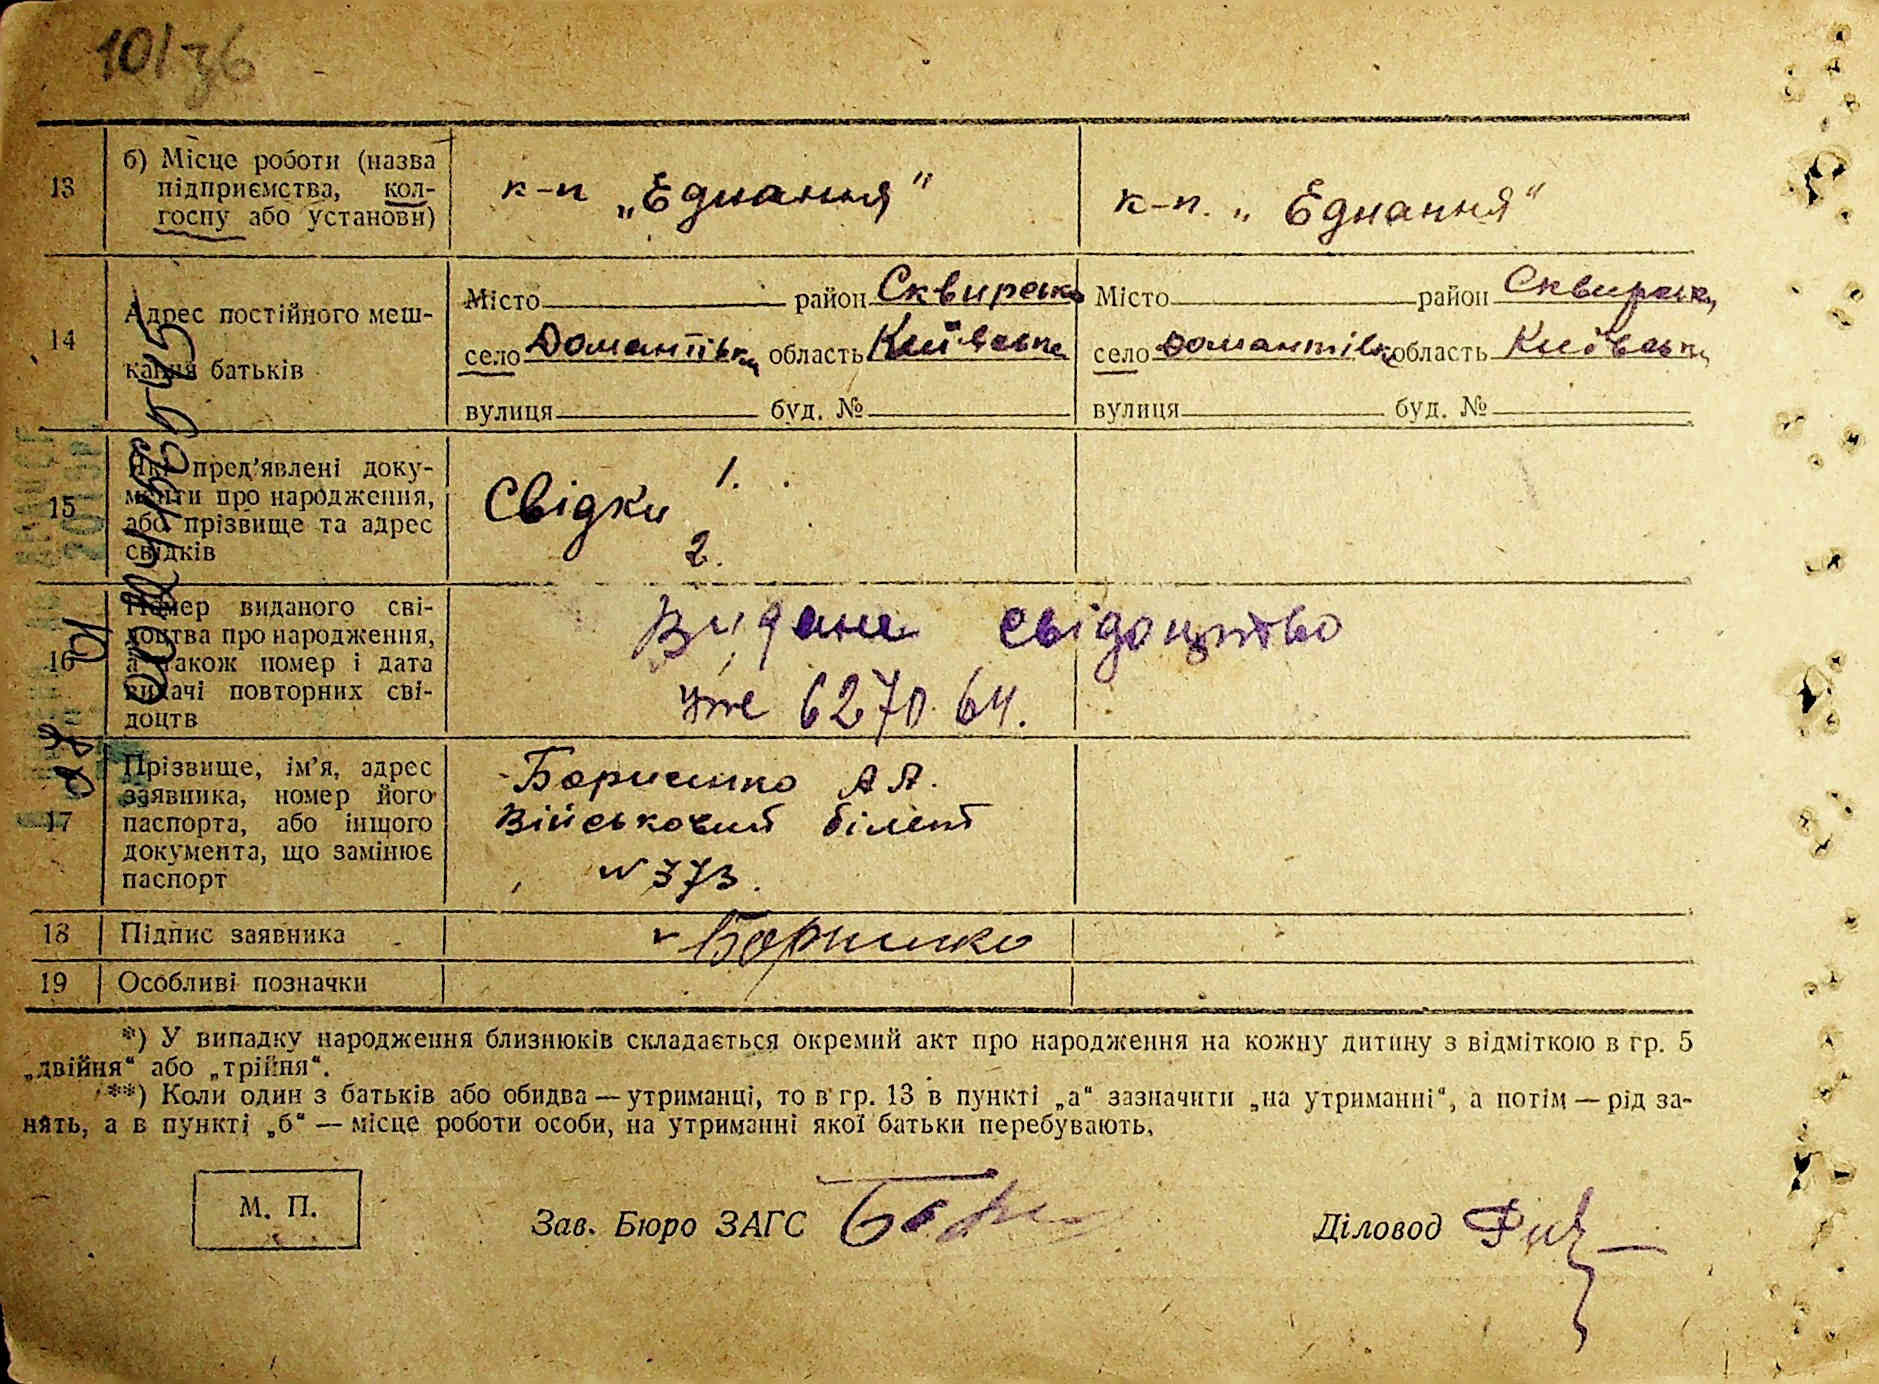 10/36
13
б) Місце роботи (назва
підприємства, кол-
госпу або установи)
к-п „Еднання“
к-п. „Еднання“
14
Адрес постійного меш-
кання батьків
Місто район Сквирськ
село Домантівка область Київська
вулиця буд. №
Місто район Сквирськ
село Домантівк область Київська
вулиця буд. №
15
Які пред'явлені доку-
менти про народження,
або прізвище та адрес
свідків
Свідки 1.
2.
16
Номер виданого сві-
доцтва про народження,
а також номер і дата
видачі повторних сві-
доцтв
Видане свідоцтво
627064.
17
Прізвище, ім'я, адрес
заявника, номер його
паспорта, або іншого
документа, що замінює
паспорт
Борисенко А А.
Військовий білет
№ 373.
18
Підпис заявника
Борисенко
19
Особливі позначки
*) У випадку народження близнюків складається окремий акт про народження на кожну дитину з відміткою в гр. 5
„двійня“ або „трійня“.
**) Коли один з батьків або обидва — утриманці, то в гр. 13 в пункті „а“ зазначити „на утриманні“, а потім — рід за-
нять, а в пункті „б“ — місце роботи особи, на утриманні якої батьки перебувають.
М. П.
Зав. Бюро ЗАГС
Діловод